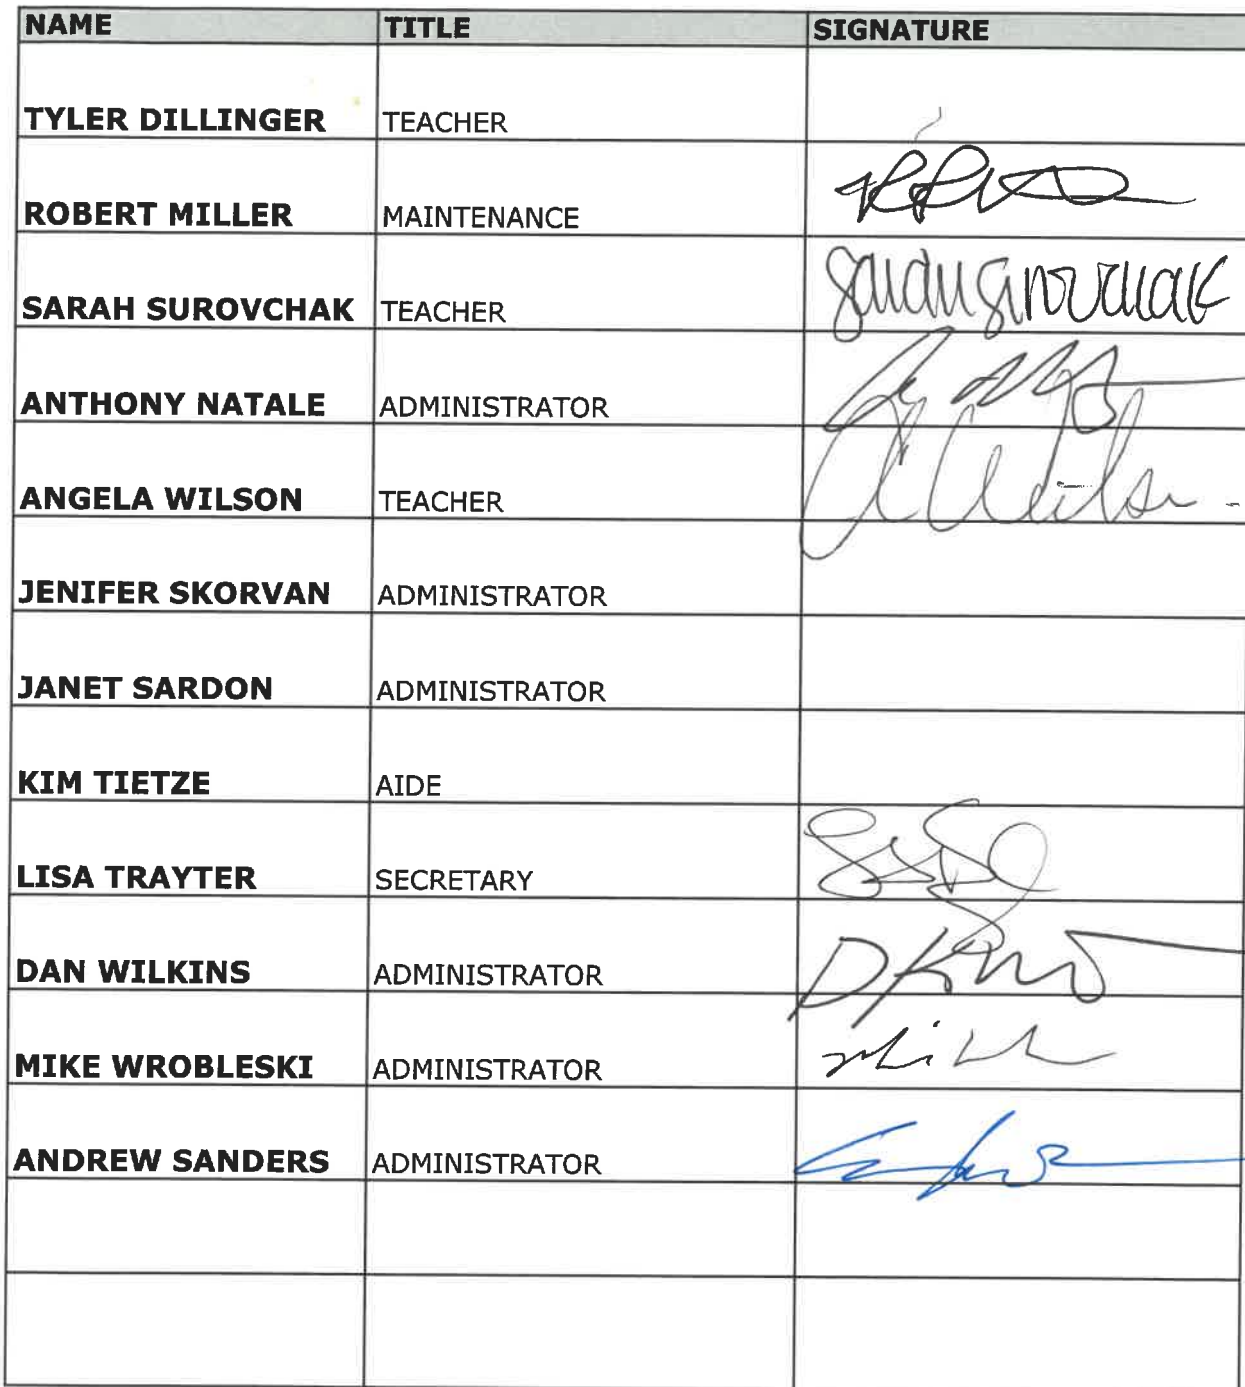 NAME TITLE SIGNATURE
TYLER DILLINGER TEACHER
ROBERT MILLER MAINTENANCE
SARAH SUROVCHAK TEACHER
ANTHONY NATALE ADMINISTRATOR
ANGELA WILSON TEACHER A Wilson
JENIFER SKORVAN ADMINISTRATOR
JANET SARDON ADMINISTRATOR
KIM TIETZE AIDE
LISA TRAYTER SECRETARY
DAN WILKINS ADMINISTRATOR
MIKE WROBLESKI ADMINISTRATOR
ANDREW SANDERS ADMINISTRATOR